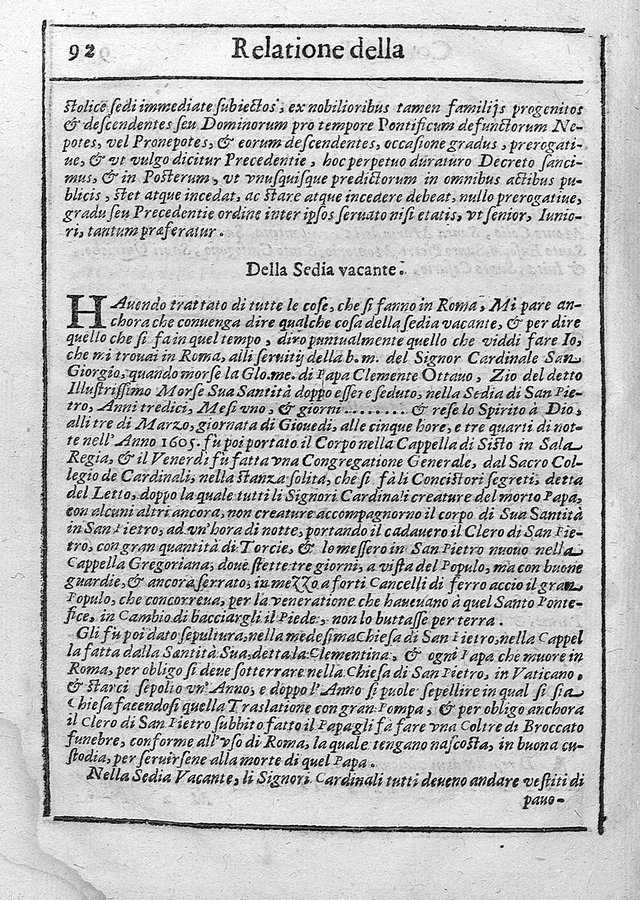 92 Relatione della
stolice sedi immediate subiectos, ex nobilioribus tamen familijs progenitos
& descendentes seu Dominorum pro tempore Pontificum defunctorum Ne-
potes, vel Pronepotes, & eorum descendentes, occasione gradus, prerogati-
ue, & vt vulgo dicitur Precedentie, hoc perpetuo duraturo Decreto sanci-
mus, & in Posterum, vt vnusquisque predictorum in omnibus actibus pu-
blicis, stet atque incedat, ac stare atque incedere debeat, nullo prerogatiue,
gradu seu Precedentie ordine inter ipsos seruato nisi etatis, vt senior, Iunio-
ri, tantum præferatur.
Della Sedia vacante.
HAuendo trattato di tutte le cose, che si fanno in Roma, Mi pare an-
chora che conuenga dire qualche cosa della sedia vacante, & per dire
quello che si fa in quel tempo, diro puntualmente quello che viddi fare Io,
che mi trouai in Roma, alli seruitij della b. m. del Signor Cardinale San
Giorgio, quando morse la Glo. me. di Papa Clemente Ottauo, Zio del detto
Illustrissimo Morse Sua Santità doppo essere seduto, nella Sedia di San Pie-
tro, Anni tredici, Mesi vno, & giorni ......... & rese lo Spirito à Dio,
alli tre di Marzo, giornata di Giouedi, alle cinque hore, e tre quarti di not-
te nell'Anno 1605. fù poi portato il Corpo nella Cappella di Sisto in Sala
Regia, & il Venerdì fù fatta vna Congregatione Generale, dal Sacro Col-
legio de Cardinali, nella stanza solita, che si fà li Concistori segreti, detta
del Letto, doppo la quale tutti li Signori Cardinali creature del morto Papa,
con alcuni altri ancora, non creature accompagnorno il corpo di Sua Santità
in San Pietro, ad vn'hora di notte, portando il cadauero il Clero di San Pie-
tro, con gran quantità di Torcie, & lo messero in San Pietro nuouo nella
Cappella Gregoriana, doue stette tre giorni, a vista del Populo, ma con buone
guardie, & ancora serrato, in mezzo a forti Cancelli di ferro accio il gran
Populo, che concorreua, per la veneratione che haueuano à quel Santo Ponte-
fice, in Cambio di bacciargli il Piede, non lo buttasse per terra.
Gli fù poi dato sepultura, nella medesima Chiesa di San Pietro, nella Cappel
la fatta dalla Santità Sua, detta la Clementina, & ogni Papa che muore in
Roma, per obligo si deue sotterrare nella Chiesa di San Pietro, in Vaticano.
& Starci sepolto vn'Anno, e doppo l'Anno si puole sepellire in qual si sia
Chiesa facendosi quella Traslatione con gran Pompa, & per obligo anchora
il Clero di San Pietro subbito fatto il Papa gli fa fare vna Coltre di Broccato
funebre, conforme all'vso di Roma, la quale tengano nascosta, in buona cu-
stodia, per seruirsene alla morte di quel Papa.
Nella Sedia Vacante, li Signori Cardinali tutti deueno andare vestiti di
pauo-